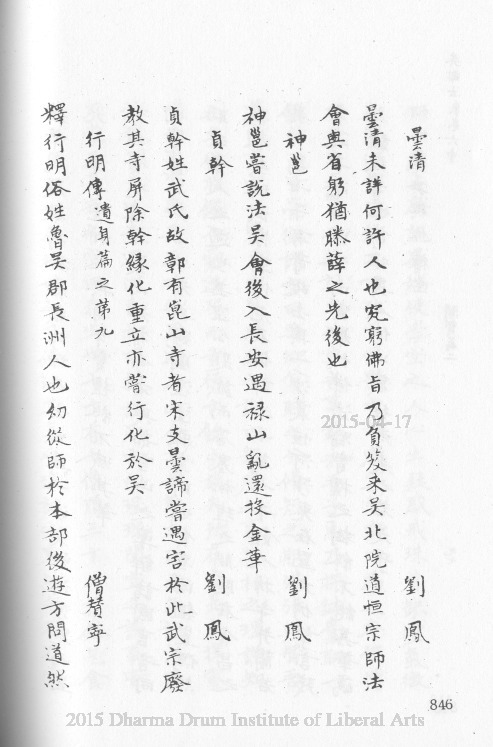 曇清　劉鳳
曇清未詳何許人也究窮佛旨乃負笈来吴北院道恒宗師法
會與省躬猶滕薛之先後也
神邕　劉鳳
神邕嘗說法吴會後入長安遇禄山亂還投金華
貞幹　劉鳳
貞幹姓武氏故鄣有崑山寺者宋支曇諦嘗遇害於此武宗廢
教其寺屏除幹緣化重立亦嘗行化於吴
行明傳遺身篇之第九　僧賛寧
釋行明俗姓魯吴郡長洲人也幼從師於本部後遊方問道然
846
2015-04-17
2015 Dharma Drum Institute of Liberal Arts